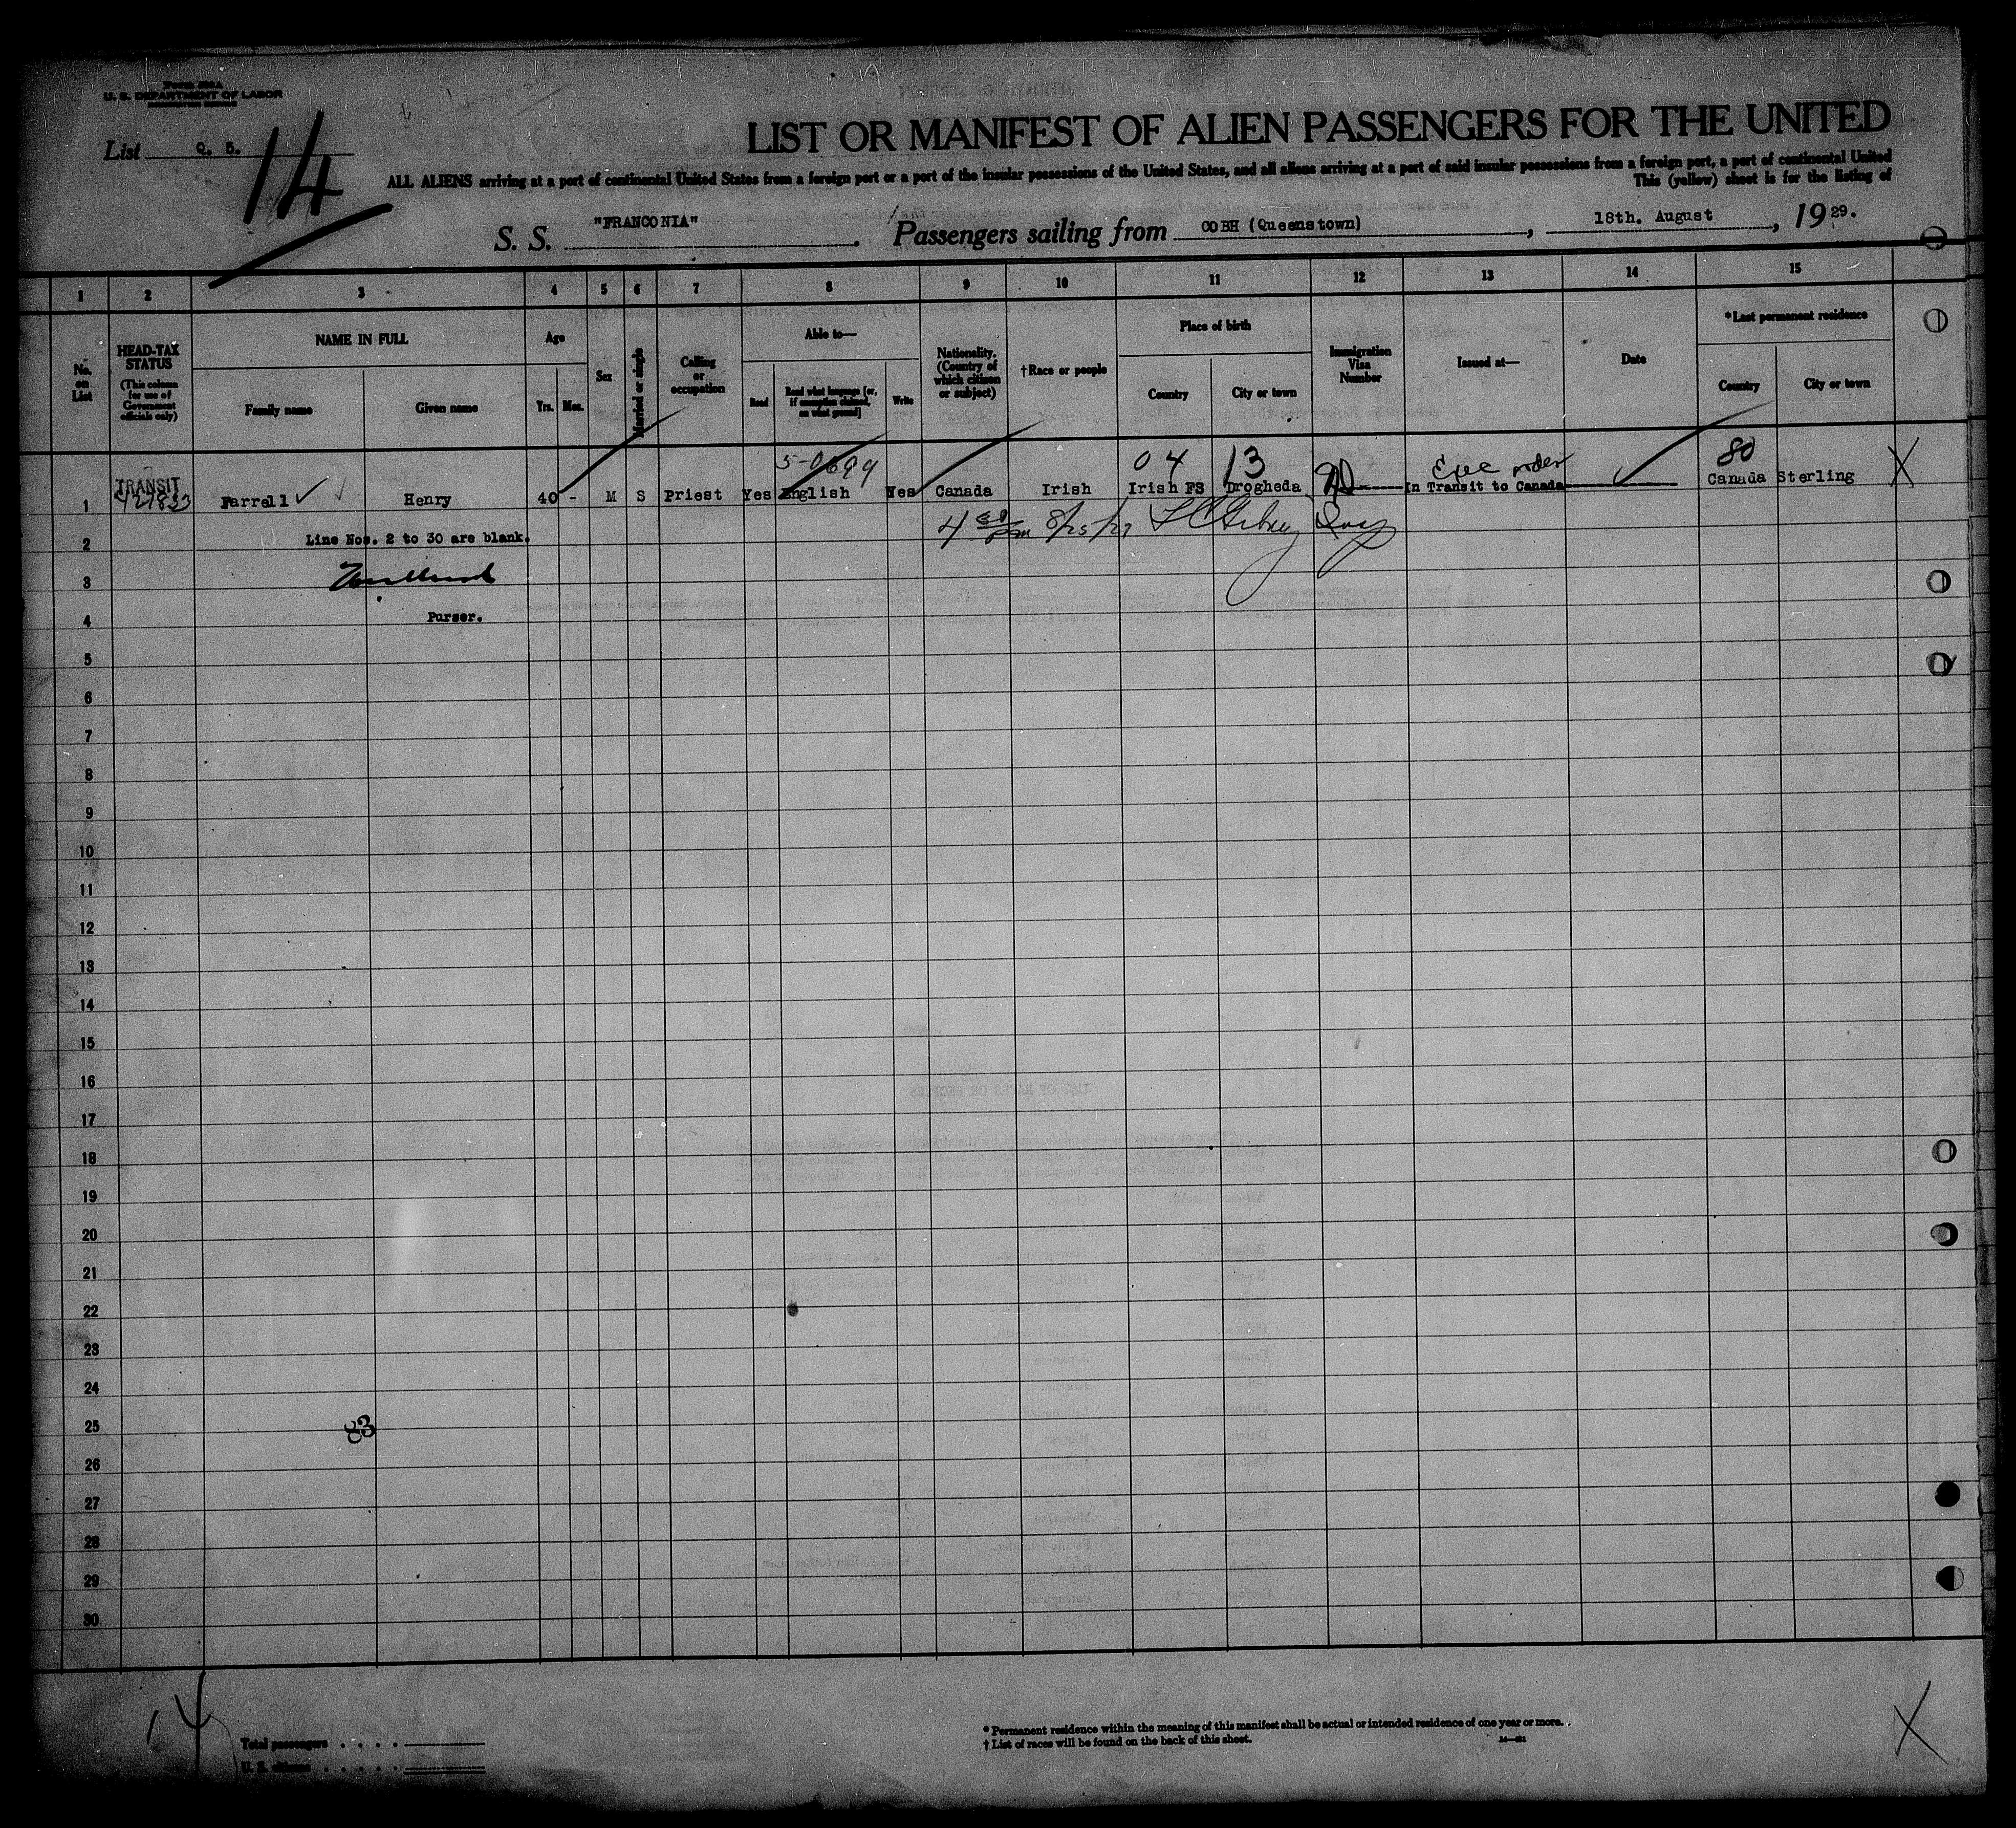 U. S. DEPARTMENT OF LABOR
List Q. 5.
14
LIST OR MANIFEST OF ALIEN PASSENGERS FOR THE UNITED
ALL ALIENS arriving at a port of continental United States from a foreign port or a port of the insular possessions of the United States, and all aliens arriving at a port of said insular possessions from a foreign port, a port of continental United
This (yellow) sheet is for the listing of
S. S. "FRANCONIA". Passengers sailing from COBH (Queenstown), 18th. August, 1929.
1 2 3 4 5 6 7 8 9 10 11 12 13 14 15
No. on List
HEAD-TAX STATUS (This column for use of Government officials only)
NAME IN FULL
Family name Given name
Age
Yrs. Mos.
Sex
Married or single
Calling or occupation
Able to—
Read Read what language [or, if exemption claimed, on what ground] Write
Nationality. (Country of which citizen or subject)
†Race or people
Place of birth
Country City or town
Immigration Visa Number
Issued at—
Date
*Last permanent residence
Country City or town
5-0699 04 13 Exec order 80
TRANSIT
1 Farrell Henry 40 - M S Priest Yes English Yes Canada Irish Irish FS Drogheda In Transit to Canada Canada Sterling X
2 Line Nos. 2 to 30 are blank.
3
4 Purser.
5
6
7
8
9
10
11
12
13
14
15
16
17
18
19
20
21
22
23
24
25
83
26
27
28
29
30
14
Total passengers
U. S. citizens
* Permanent residence within the meaning of this manifest shall be actual or intended residence of one year or more.
† List of races will be found on the back of this sheet.
X